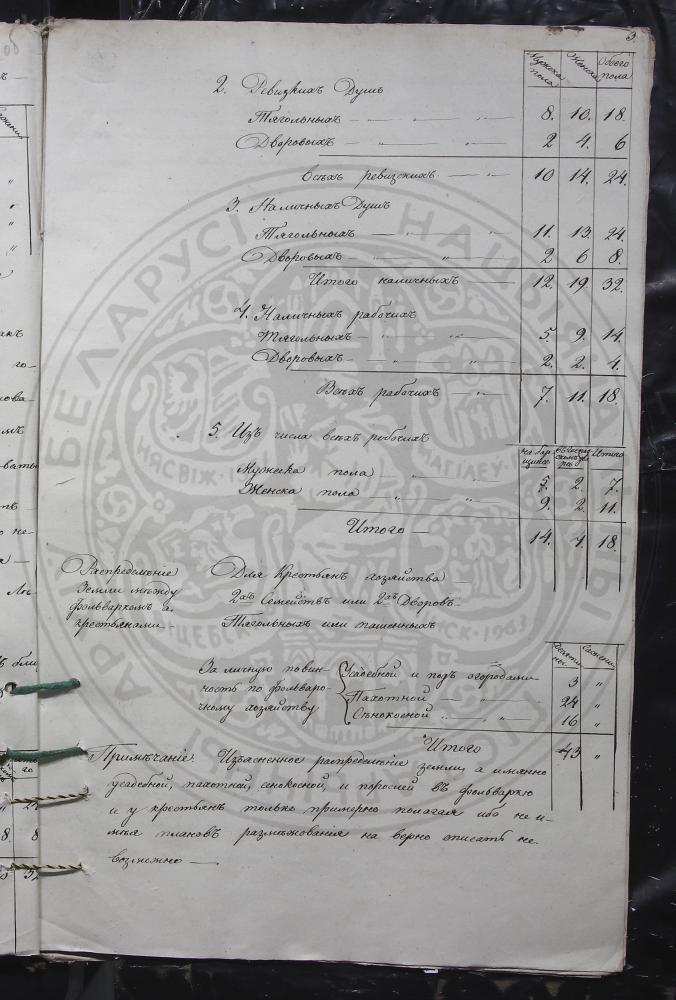 3
Мужска пола Женска Обоего пола
2. Ревизкихъ Душъ
Тягольныхъ — 8. 10. 18.
Дворовыхъ — 2 4. 6
всѣхъ ревизскихъ — 10 14. 24.
3. Наличныхъ Душъ
Тягольныхъ — 11. 13. 24.
Дворовыхъ — 2 6 8.
Итого наличныхъ — 12. 19 32.
4. Наличныхъ рабочихъ
Тягольныхъ — 5. 9. 14.
Дворовыхъ — 2. 2. 4.
Всѣхъ рабочихъ — 7. 11. 18.
5. Изъ числа всѣхъ рабочихъ
на барщинѣ Итого
Мужеска пола 5 2. 7.
Женска пола 9. 2. 11.
Итого — 14. 4. 18.
Распредѣленіе
Земли между
фольваркомъ и
крестьянами —
Для Крестьянъ хозяйства —
2хъ Семействъ или 2хъ Дворовъ
Тягольныхъ или пашенныхъ
Десятины Сажени
За личную повин-
ность по фольваро-
чному хозяйству
Усадебной и подъ огородами 3 "
Пахотной — 24 "
Сѣнокосной 16 "
Итого 43 "
Примѣчаніе. Изъясненное распредѣленіе земли, а имянно
усадебной, пахотной, сенокосной, и порослей въ фольваркѣ
и у крестьянъ только примерно полагая ибо не и-
мѣя плановъ размѣжованія на верно описать не-
возможно —
БЕЛАРУСІ
НЯСВІЖ